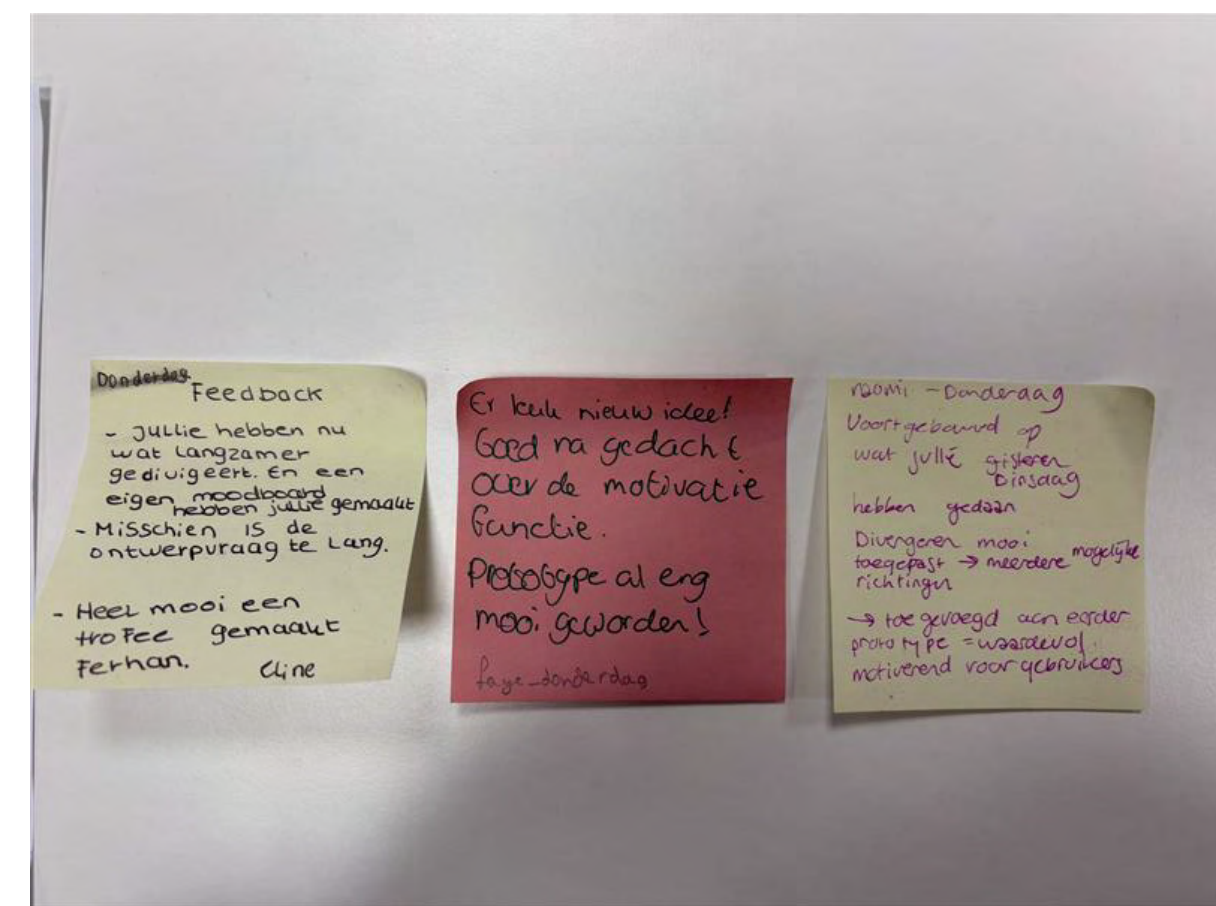 Donderdag
Feedback
- Jullie hebben nu
wat langzamer
gediuigeert. En een
eigen moodboard
hebben jullie gemaakt
- Misschien is de
ontwerpvraag te lang.
- Heel mooi een
trofee gemaakt
Ferhan.
Cline
Er leuk nieuw idee!
Goed na gedacht
over de motivatie
functie.
Prototype al erg
mooi geworden!
faye_donderdag
naomi - Donderdag
Voortgebouwd op
wat jullie gisteren
Dinsdag
hebben gedaan
Divergeren mooi
toegepast → meerdere mogelijke
richtingen
→ toegevoegd aan eerder
prototype = waardevol.
motiverend voor gebruikers